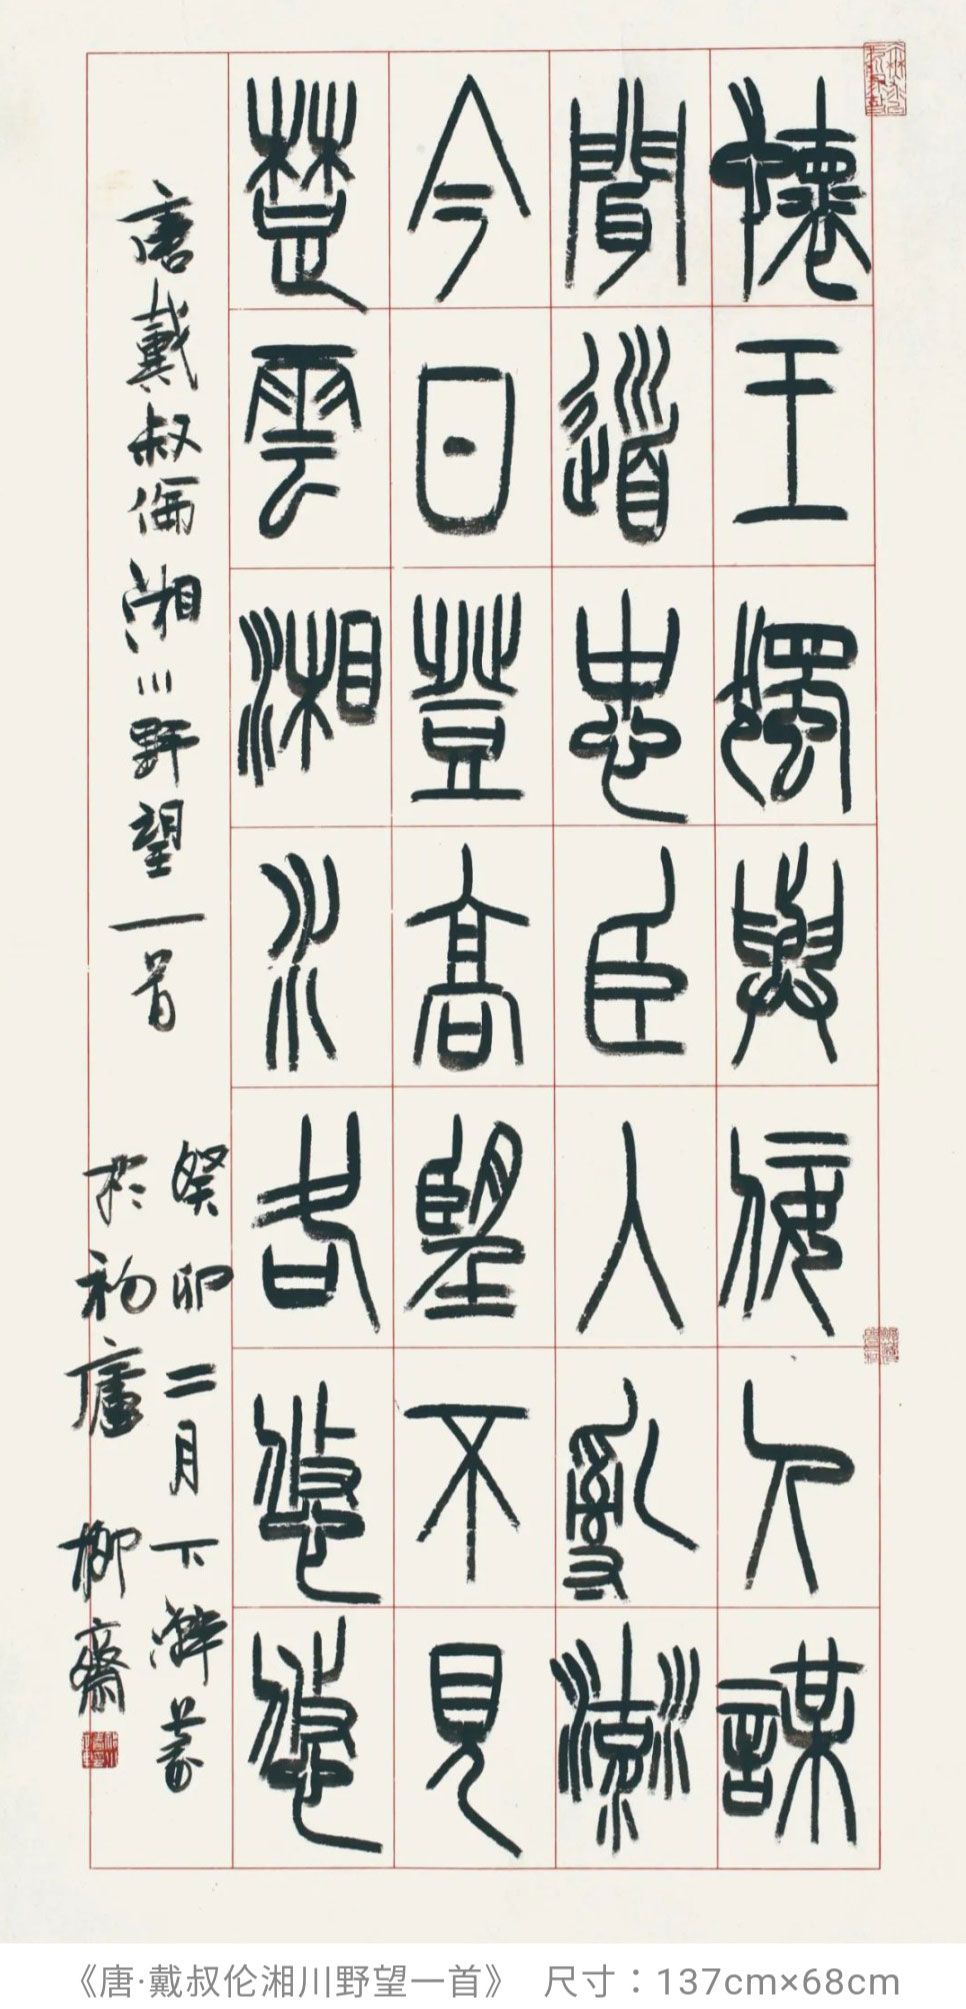 懷王獨與佞人謀
聞道忠臣入亂流
今日登高望不見
楚雲湘水各悠悠
唐戴叔倫湘川野望一首
癸卯二月下澣篆
於初廬 柳齋
《唐·戴叔伦湘川野望一首》 尺寸：137cm×68cm